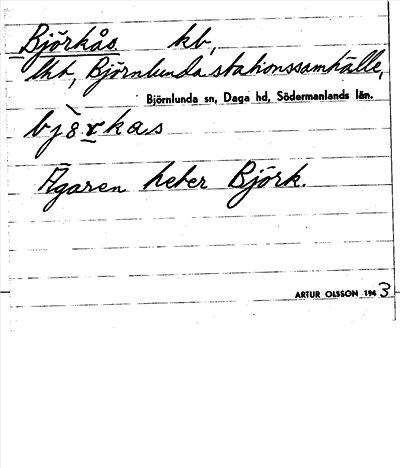 Björkås kb,
lht, Björnlunda stationssamhälle,
Björnlunda sn, Daga hd, Södermanlands län.
bjèrkas
Ägaren heter Björk.
ARTUR OLSSON 1943